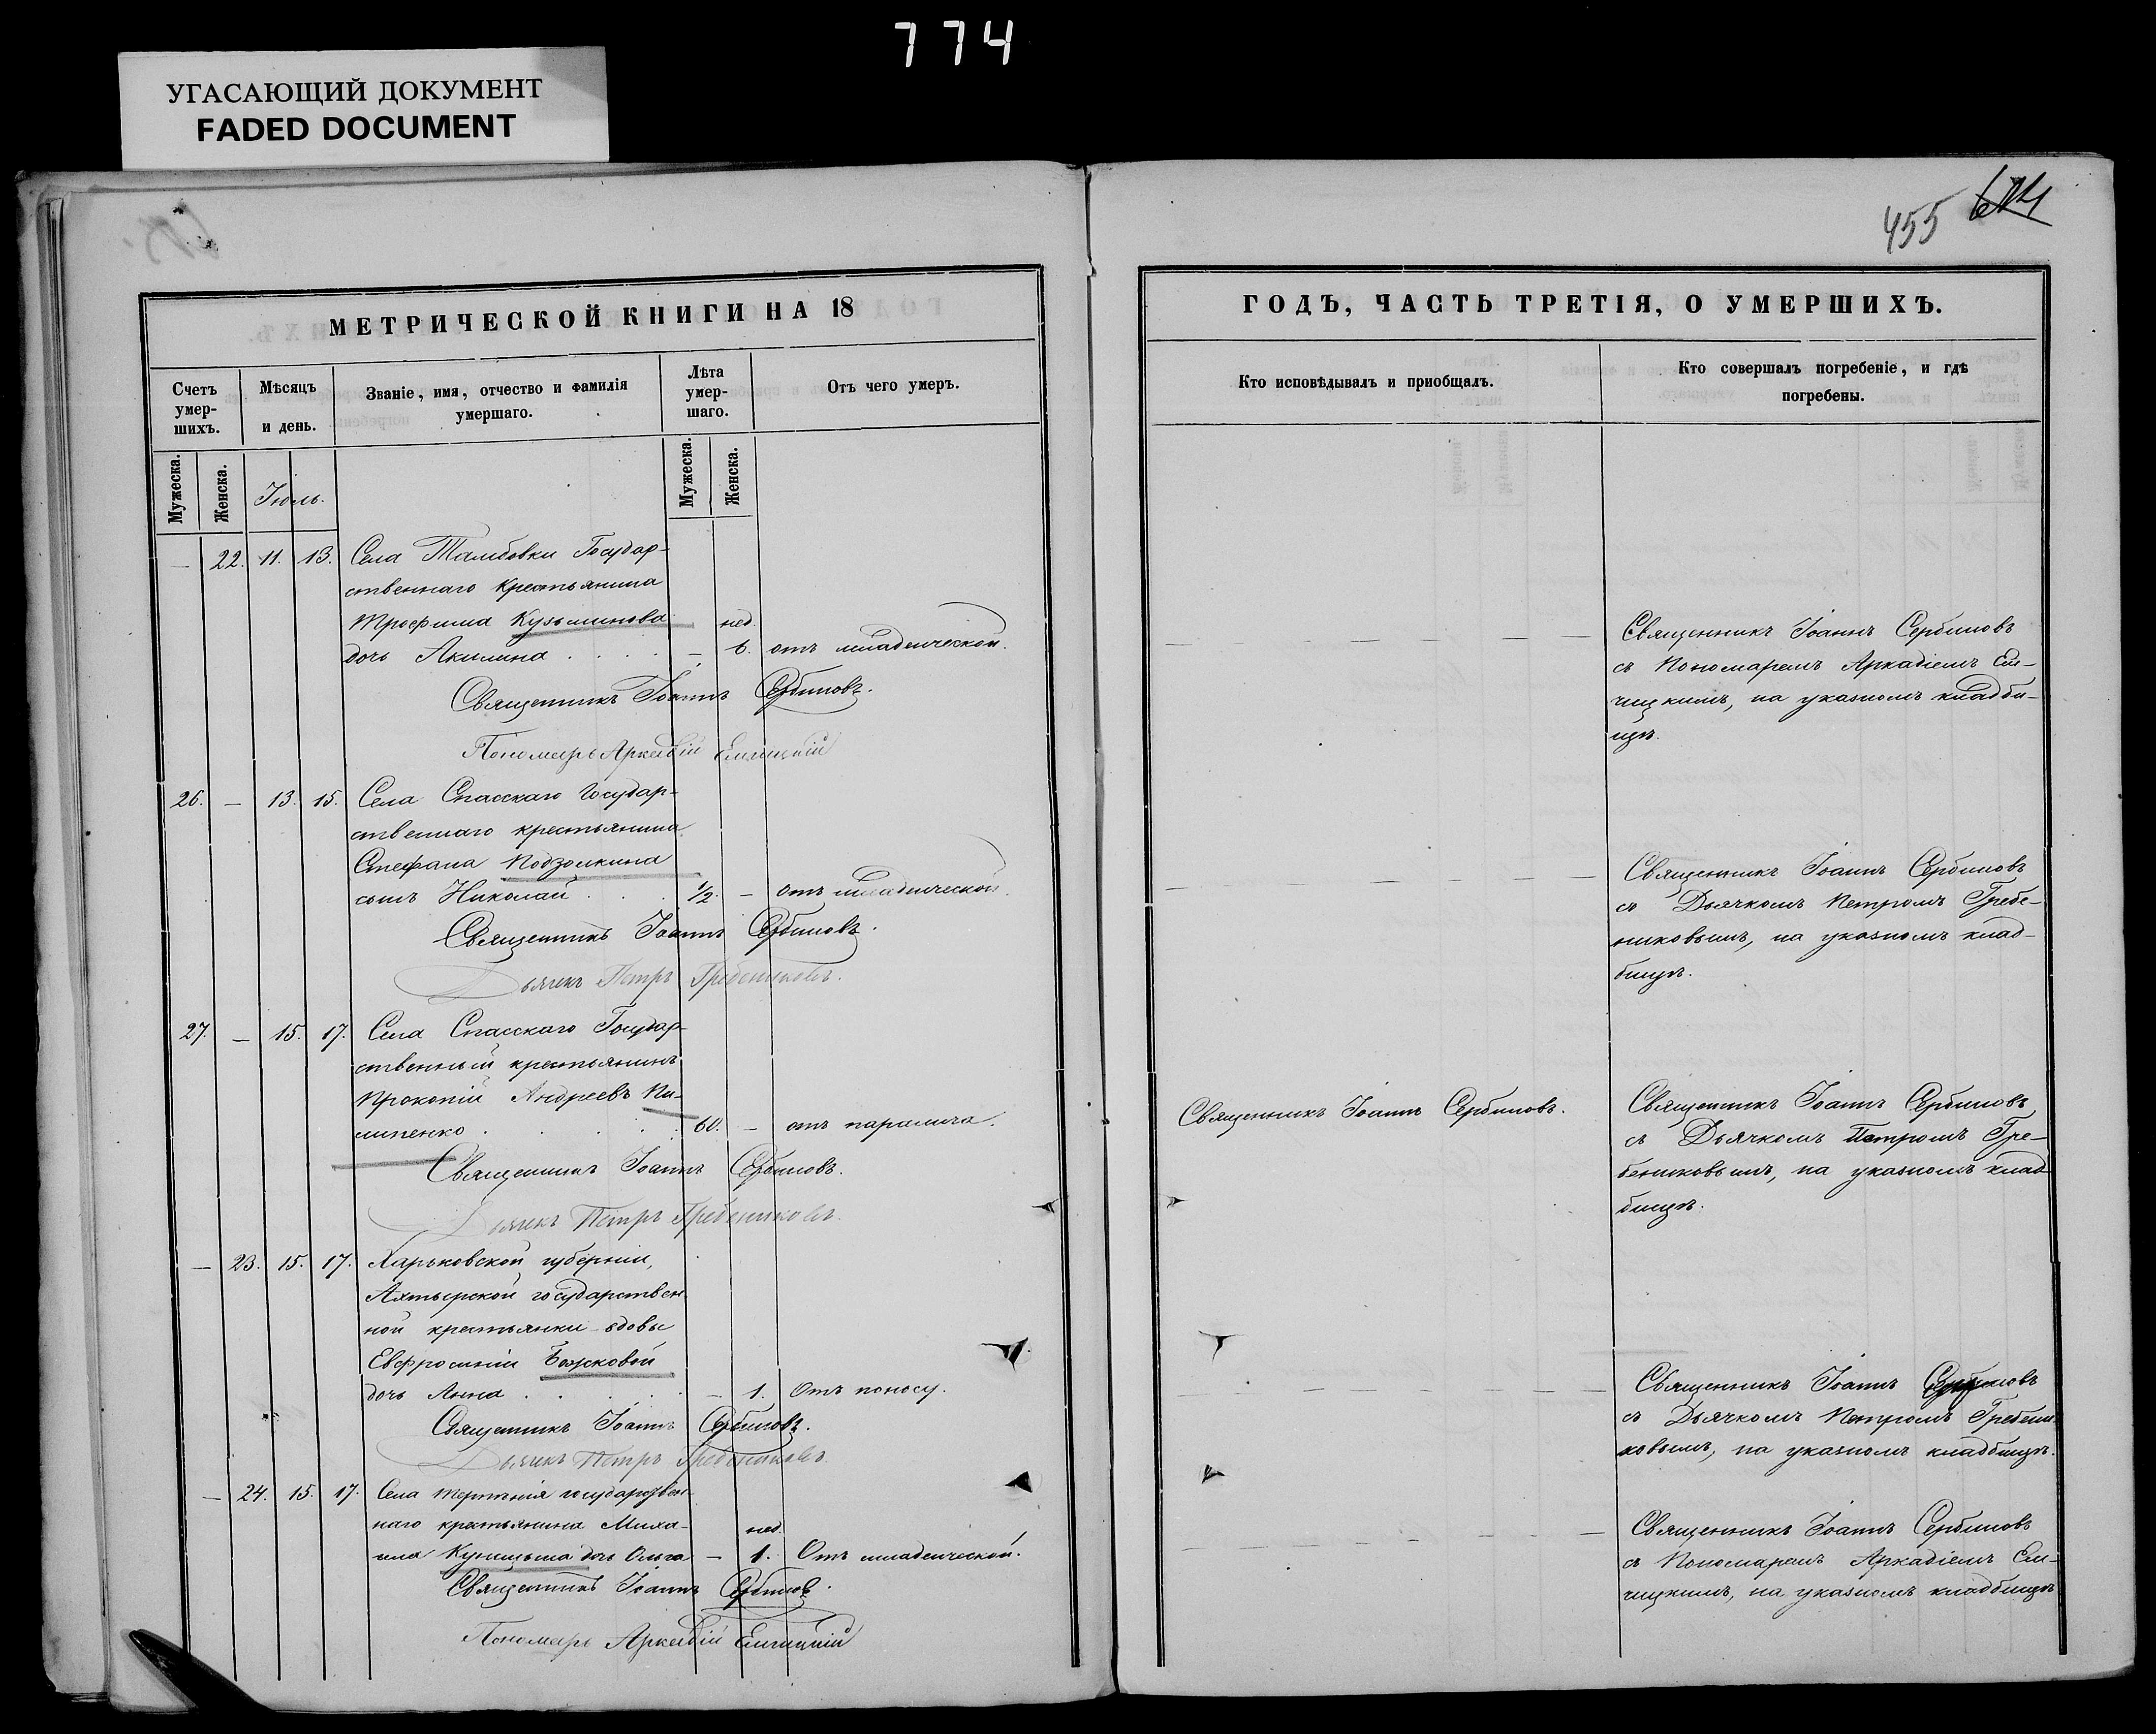 774
УГАСАЮЩИЙ ДОКУМЕНТ
FADED DOCUMENT
455 614
МЕТРИЧЕСКОЙ КНИГИ НА 18
Счетъ умер-шихъ.
Мѣсяцъ и день.
Званіе, имя, отчество и фамилія умершаго.
Лѣта умер-шаго.
Отъ чего умеръ.
Мужеска.
Женска.
Іюль.
Мужеска.
Женска.
— 22. 11. 13. Села Тамбовки Государ-
ственнаго крестьянина
Трофима Кузьминова нед.
дочь Акилина . . . . — 6. отъ младенческой.
Священникъ Іоаннъ Сербиновъ.
Пономарь Аркадій Емчицкій
26. — 13. 15. Села Спасскаго Государ-
ственнаго крестьянина
Стефана Подзолкина
сынъ Николай . . . 1/2. — отъ младенческой.
Священникъ Іоаннъ Сербиновъ.
Дьячекъ Петръ Гребениковъ.
27. — 15. 17. Села Спасскаго Государ-
ственный крестьянинъ
Прокопій Андреевъ Пи-
липенко . . . . . 60. — отъ паралича.
Священникъ Іоаннъ Сербиновъ.
Дьячекъ Петръ Гребениковъ.
— 23. 15. 17. Харьковской губерніи,
Ахтырской государствен
ной крестьянки-вдовы
Евфросиніи Божковой
дочь Анна . . . . . — 1. Отъ поносу.
Священникъ Іоаннъ Сербиновъ.
Дьячекъ Петръ Гребениковъ.
— 24. 15. 17. Села Терпѣнія государствен-
наго крестьянина Миха- нед.
ила Куницына дочь Ольга — 1. Отъ младенческой.
Священникъ Іоаннъ Сербиновъ.
Пономарь Аркадій Емчицкій
ГОДЪ, ЧАСТЬ ТРЕТІЯ, О УМЕРШИХЪ.
Кто исповѣдывалъ и пріобщалъ.
Кто совершалъ погребеніе, и гдѣ
погребены.
Священникъ Іоаннъ Сербиновъ
съ Пономаремъ Аркадіемъ Ем-
чицкимъ, на указномъ кладби-
щѣ.
Священникъ Іоаннъ Сербиновъ
съ Дьячкомъ Петромъ Гребе-
никовымъ, на указномъ клад-
бищѣ.
Священникъ Іоаннъ Сербиновъ.
Священникъ Іоаннъ Сербиновъ
съ Дьячкомъ Петромъ Гре-
бениковымъ, на указномъ клад
бищѣ.
Священникъ Іоаннъ Сербиновъ
съ Дьячкомъ Петромъ Гребени
ковымъ, на указномъ кладбищѣ.
Священникъ Іоаннъ Сербиновъ
съ Пономаремъ Аркадіемъ Ем-
чицкимъ, на указномъ кладбищѣ